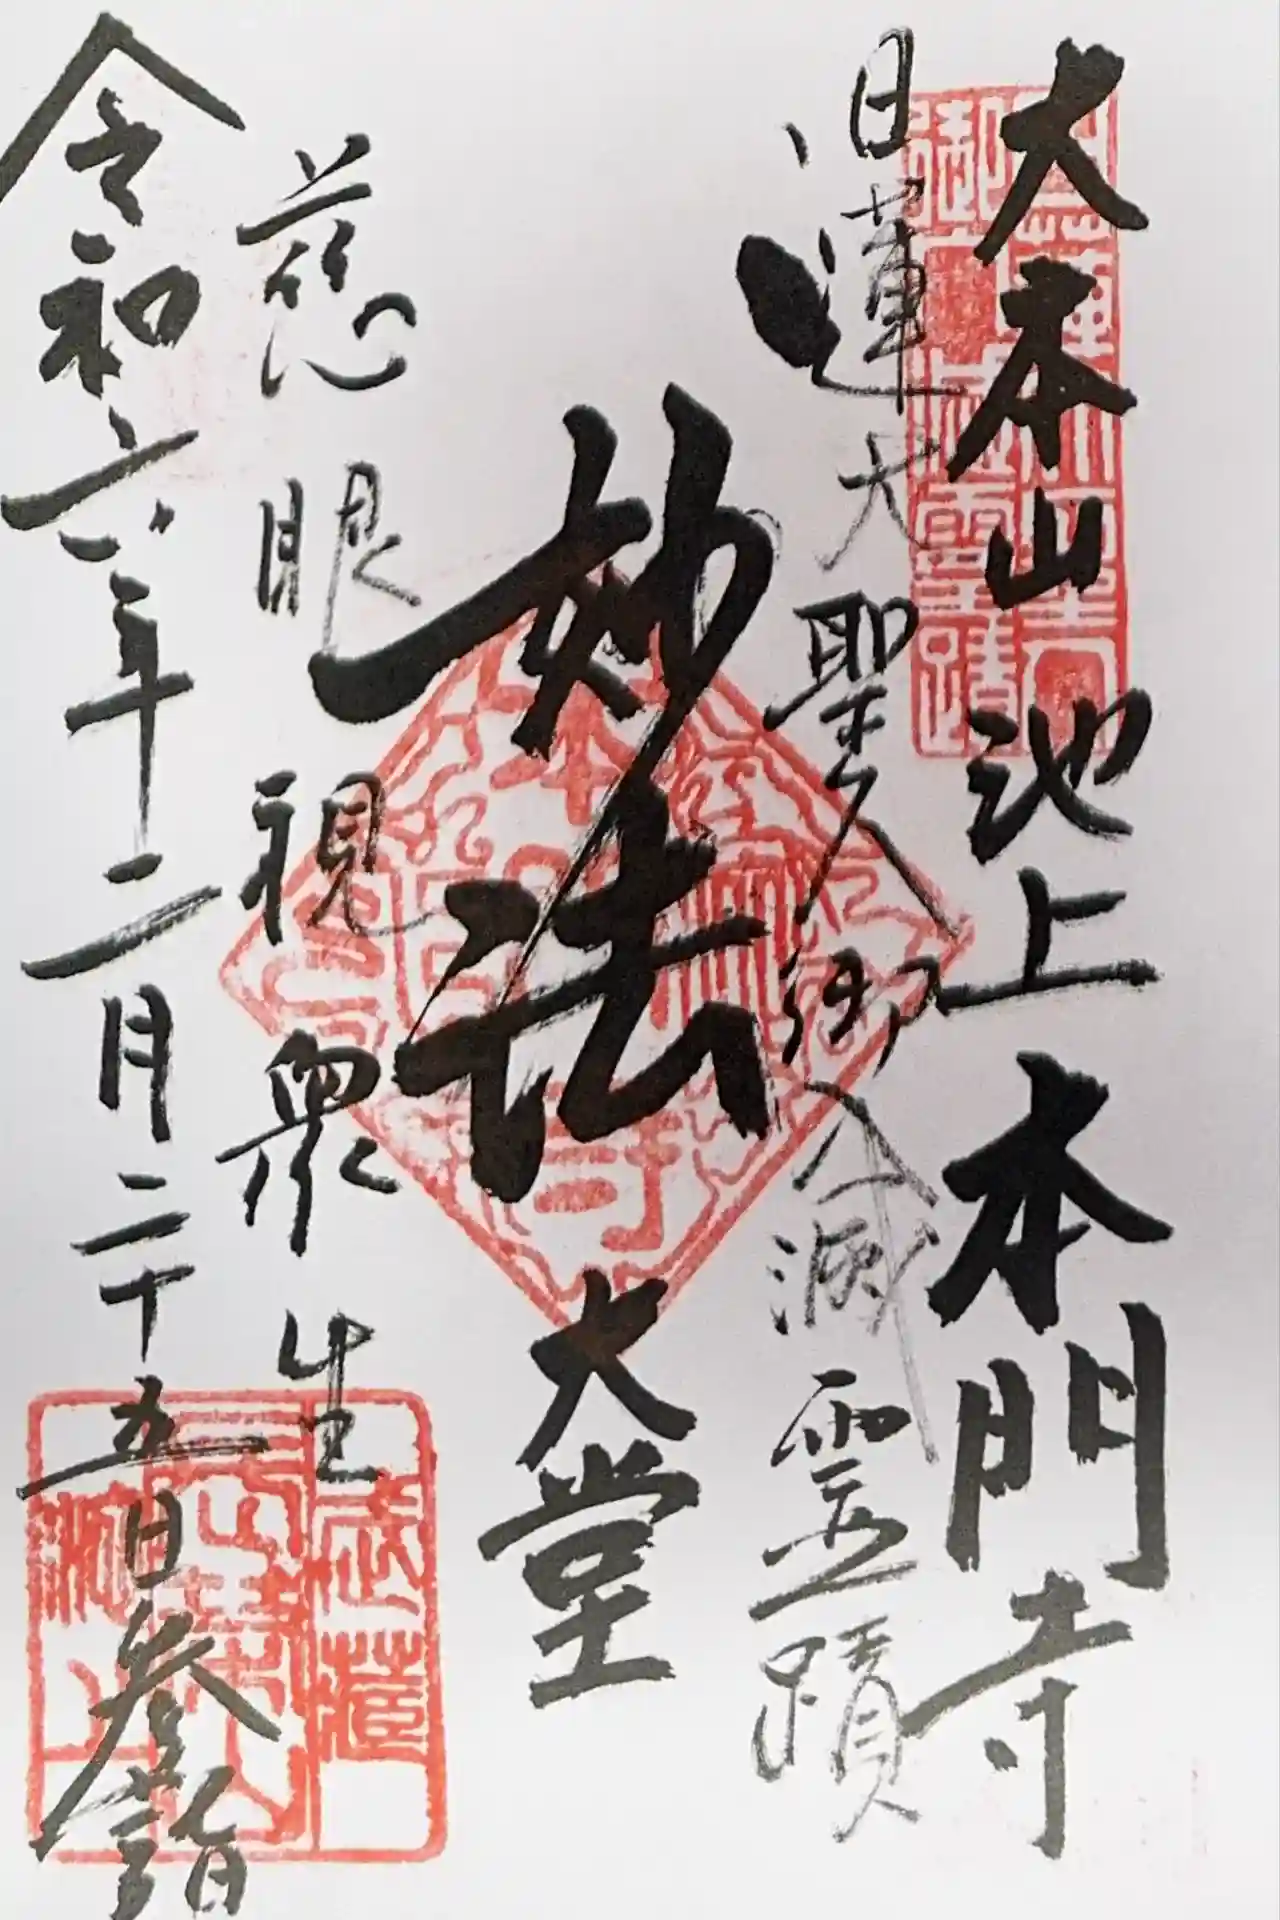 大本山池上本門寺
日蓮大聖人御入滅霊蹟
妙法
大堂
慈眼視衆生
令和六年二月二十五日参詣